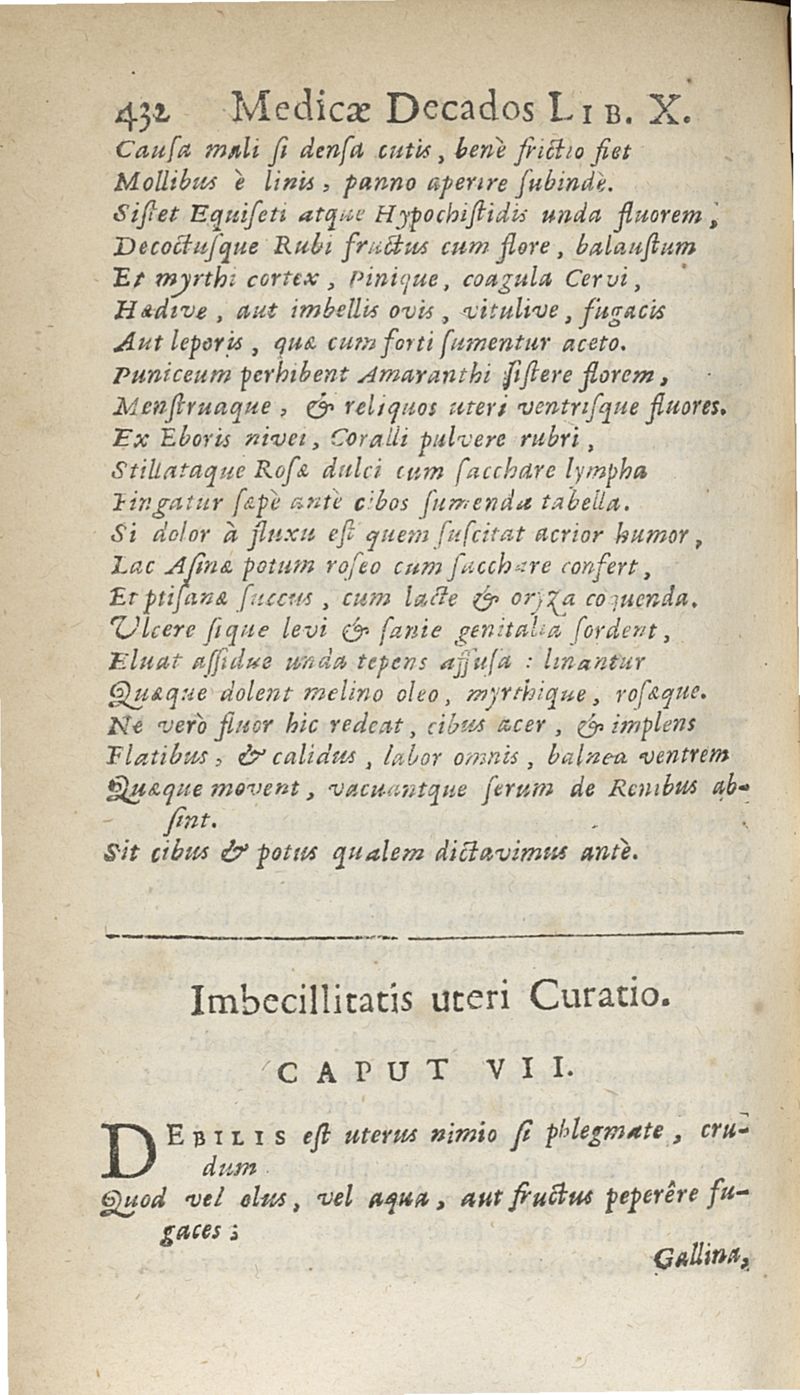 432 Medicæ Decados LIB. X.
Causa mali si densa cutis, benè frictio fiet
Mollibus è linis, panno aperire subindè.
Sistet Equiseti atque Hypochistidis unda fluorem;
Decoctusque Rubi fructus cum flore, balaustum
Et myrthi cortex, Pinique, coagula Cervi,
Hædive, aut imbellis ovis, vitulive, fugacis
Aut leporis, quæ cum forti sumentur aceto.
Puniceum perhibent Amaranthi sistere florem,
Menstruaque, & reliquos uteri ventrisque fluores.
Ex Eboris nivei, Coralli pulvere rubri,
Stillataque Rosæ dulci cum sacchare lympha
Fingatur sæpè antè cibos sumenda tabella.
Si dolor à fluxu est quem suscitat acrior humor,
Lac Asinæ potum roseo cum sacchare confert,
Et ptisanæ succus, cum lacte & oryza coquenda.
Ulcere sique levi & sanie genitalia sordent,
Eluat assidue unda tepens affusa : linantur
Quæque dolent melino oleo, myrthique, rosæque.
Ne verò fluor hic redeat, cibus acer, & implens
Flatibus, & calidus, labor omnis, balnea ventrem
Quæque movent, vacuantque serum de Renibus ab-
sint.
Sit cibus & potus qualem dictavimus antè.
Imbecillitatis uteri Curatio.
CAPUT VII.
DEBILIS est uterus nimio si phlegmate, cru-
dum
Quod vel olus, vel aqua, aut fructus peperêre fu-
gaces;
Gallina,